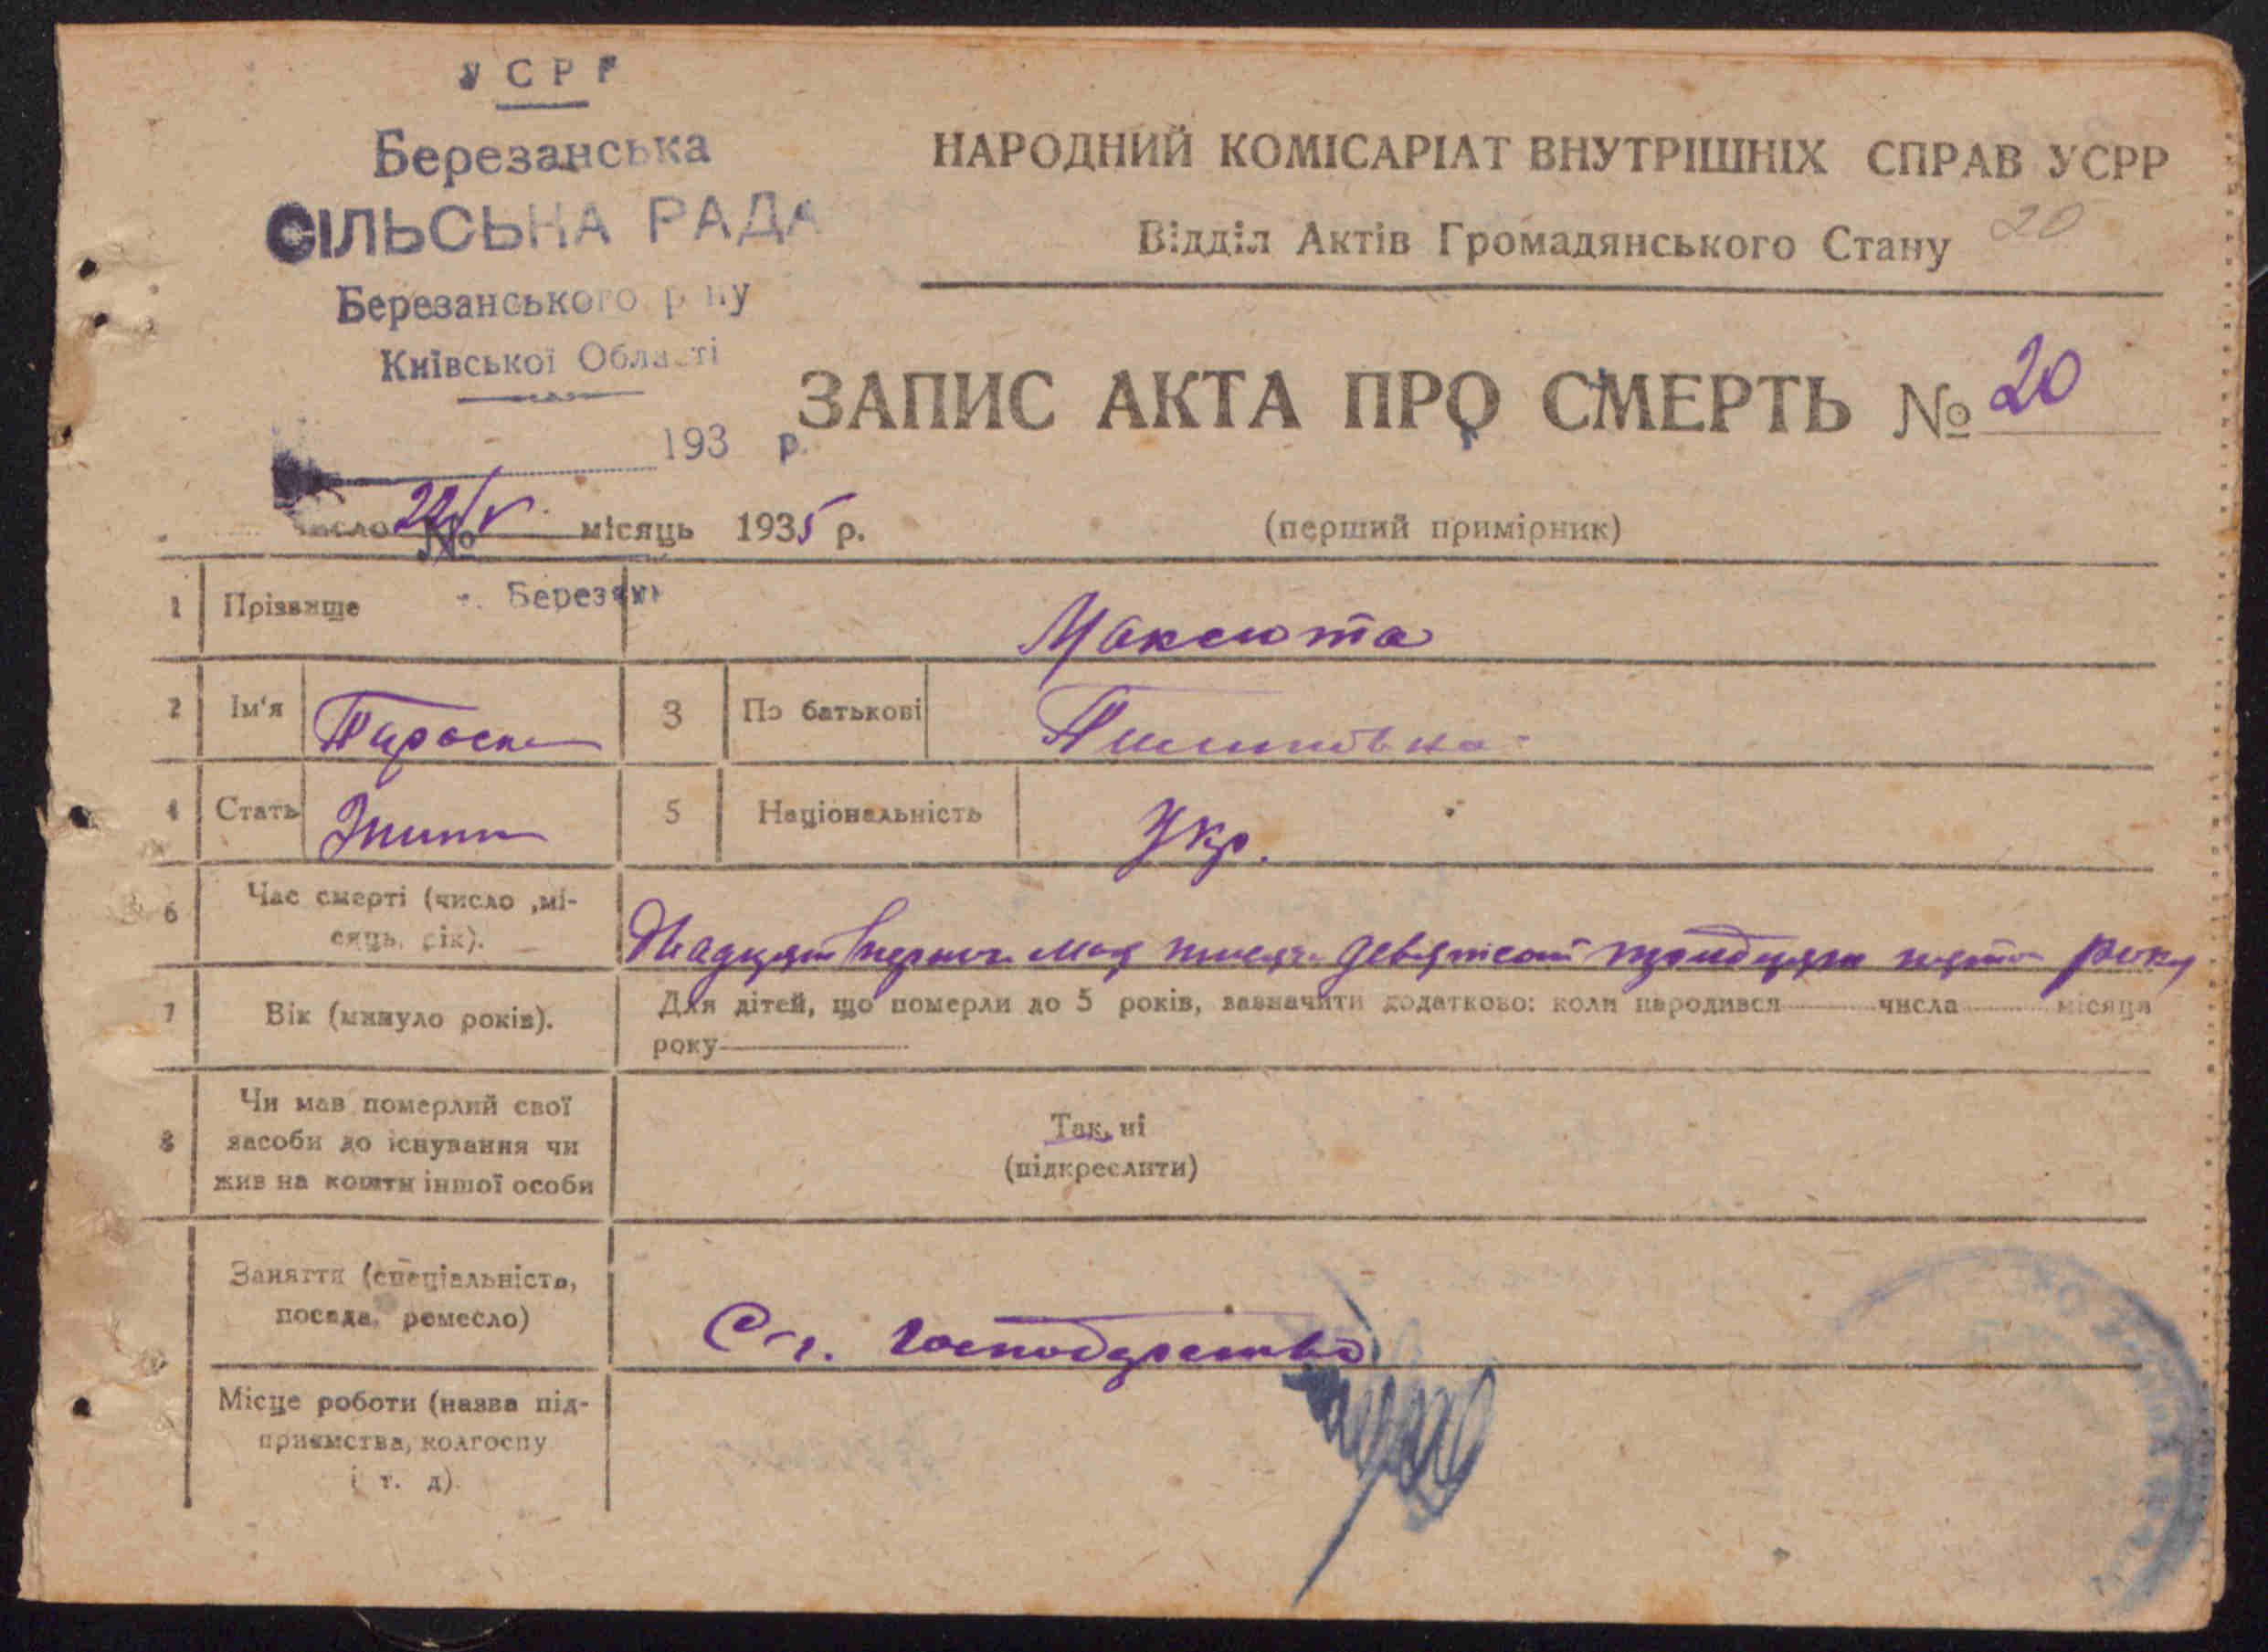 УСРР
Березанська
СІЛЬСЬКА РАДА
Березанського р-ну
Київської Області
193 р.
№
с. Березань
НАРОДНИЙ КОМІСАРІАТ ВНУТРІШНІХ СПРАВ УСРР
Відділ Актів Громадянського Стану 20
ЗАПИС АКТА ПРО СМЕРТЬ № 20
число 22/V місяць 1935 р.
(перший примірник)
1 Прізвище Максюта
2 Ім'я 3 По батькові
4 Стать 5 Національність Укр.
6 Час смерті (число ,мі-
сяць, рік).
Двадцять першого мая тисяча девятсот тридцять пятого року
7 Вік (минуло років).
Для дітей, що померли до 5 років, зазначити додатково: коли народився числа місяця
року
8 Чи мав померлий свої
засоби до існування чи
жив на кошти іншої особи
Так, ні
(підкреслити)
Заняття (спеціальність,
посада, ремесло)
С-г. господарство
Місце роботи (назва під-
приємства, колгоспу
і т. д).